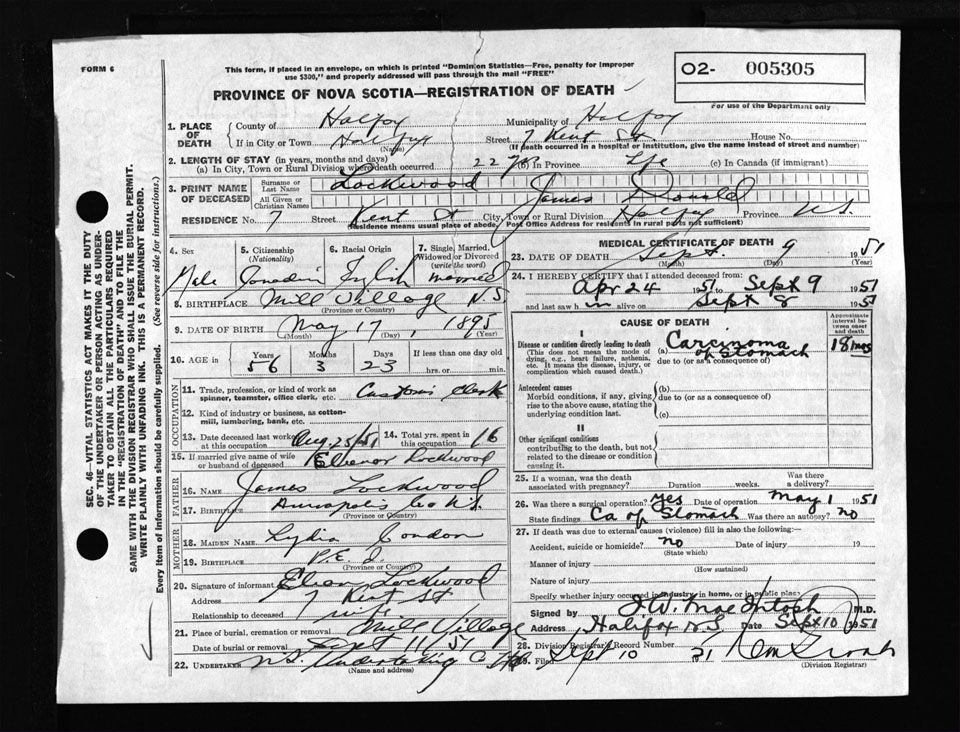 FORM 6
This form, if placed in an envelope, on which is printed "Dominion Statistics—Free, penalty for improper
use $300," and properly addressed will pass through the mail "FREE"
PROVINCE OF NOVA SCOTIA—REGISTRATION OF DEATH
O2- 005305
For use of the Department only
1. PLACE OF DEATH
County of Halifax Municipality of Halifax
If in City or Town Halifax (Name) Street 7 Kent St. House No.
(If death occurred in a hospital or institution, give the name instead of street and number)
2. LENGTH OF STAY (in years, months and days)
(a) In City, Town or Rural Division where death occurred 22 yrs (b) In Province Life (c) In Canada (if immigrant)
3. PRINT NAME OF DECEASED
Surname or Last Name Lockwood
All Given or Christian Names James Donald
RESIDENCE No. 7 Street Kent St City, Town or Rural Division Halifax Province N.S.
(Residence means usual place of abode. Post Office Address for residents in rural parts not sufficient)
4. Sex Male
5. Citizenship (Nationality) Canadian
6. Racial Origin English
7. Single, Married, Widowed or Divorced (write the word) married
8. BIRTHPLACE Mill Village N.S
(Province or Country)
9. DATE OF BIRTH May 17, 1895
(Month) (Day) (Year)
10. AGE in Years 56 Months 3 Days 23 If less than one day old
hrs. or min.
OCCUPATION
11. Trade, profession, or kind of work as
spinner, teamster, office clerk, etc. Customs Clerk
12. Kind of industry or business, as cotton-
mill, lumbering, bank, etc.
13. Date deceased last worked at this occupation Aug. 25/51 14. Total yrs. spent in this occupation 16
15. If married give name of wife
or husband of deceased Eleanor Lockwood
FATHER
16. NAME James Lockwood
17. BIRTHPLACE Annapolis Co N.S.
(Province or Country)
MOTHER
18. MAIDEN NAME Lydia Condon
19. BIRTHPLACE P.E.I.
(Province or Country)
20. Signature of informant Lockwood
Address 7 Kent St
Relationship to deceased wife
21. Place of burial, cremation or removal Mill Village
Date of burial or removal Sept 11/51
22. UNDERTAKER N.S. Undertaking Co
(Name and address)
MEDICAL CERTIFICATE OF DEATH
23. DATE OF DEATH Sept. 9 1951
(Month) (Day) (Year)
24. I HEREBY CERTIFY that I attended deceased from:
Apr 24 1951 to Sept 9 1951
and last saw him alive on Sept 8 1951
CAUSE OF DEATH
Approximate interval between onset and death
I
Disease or condition directly leading to death
(This does not mean the mode of
dying, e.g., heart failure, asthenia,
etc. It means the disease, injury, or
complication which caused death.)
(a) Carcinoma of Stomach 18 mos
due to (or as a consequence of)
Antecedent causes
Morbid conditions, if any, giving
rise to the above cause, stating the
underlying condition last.
(b)
due to (or as a consequence of)
(c)
II
Other significant conditions
contributing to the death, but not
related to the disease or condition
causing it.
25. If a woman, was the death
associated with pregnancy? Duration weeks. Was there a delivery?
26. Was there a surgical operation? Yes Date of operation May 1 1951
State findings Ca of Stomach Was there an autopsy? No
27. If death was due to external causes (violence) fill in also the following:—
Accident, suicide or homicide? No Date of injury 19
(State which)
Manner of injury
(How sustained)
Nature of injury
Specify whether injury occurred in industry, in home, or in public place
Signed by J.W. MacIntosh M.D.
Address Halifax N.S Date Sept 10 1951
28. Division Registrar's Record Number
Filed Sept 10 51
(Division Registrar)
SEC. 46—VITAL STATISTICS ACT MAKES IT THE DUTY
OF THE UNDERTAKER OR PERSON ACTING AS UNDER-
TAKER TO OBTAIN ALL THE PARTICULARS REQUIRED
IN THE "REGISTRATION OF DEATH" AND TO FILE THE
SAME WITH THE DIVISION REGISTRAR WHO SHALL ISSUE THE BURIAL PERMIT.
WRITE PLAINLY WITH UNFADING INK. THIS IS A PERMANENT RECORD.
Every item of information should be carefully supplied. (See reverse side for instructions.)